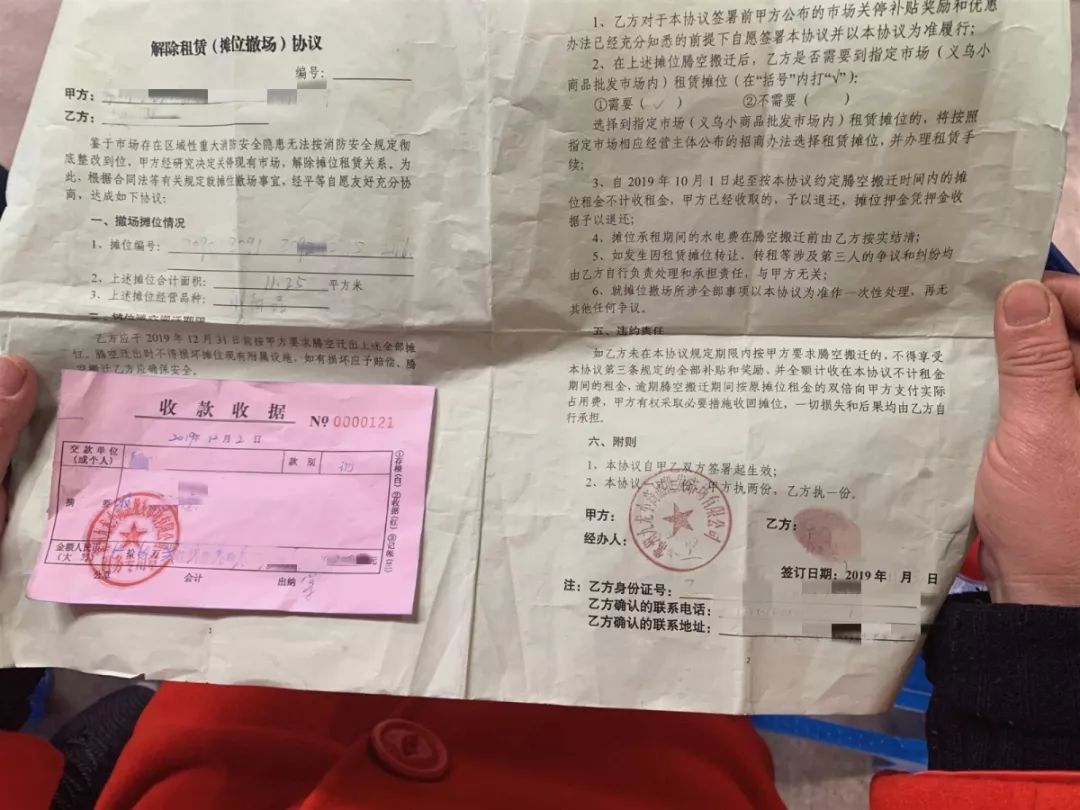 解除租赁（摊位撤场）协议
编号：
甲方：
乙方：
鉴于市场存在区域性重大消防安全隐患无法按消防安全规定彻
底整改到位，甲方经研究决定关停现有市场，解除摊位租赁关系。为
此，根据合同法等有关规定就摊位撤场事宜，经平等自愿友好充分协
商，达成如下协议：
一、撤场摊位情况
1、摊位编号：
2、上述摊位合计面积： 11.25 平方米
3、上述摊位经营品种：
乙方应于 2019 年 12 月 31 日前按甲方要求腾空迁出上述全部摊
位。腾空迁出时不得损坏摊位现有附属设施，如有损坏应予赔偿、腾
空搬迁乙方应确保安全。
收款收据 № 0000121
2019年12月2日
交款单位
（或个人）
款别
摘要
金额人民币
（大写）
元
会计
出纳
①存根（白）②收据（红）③记帐（兰）
1
1、乙方对于本协议签署前甲方公布的市场关停补贴奖励和优惠
办法已经充分知悉的前提下自愿签署本协议并以本协议为准履行；
2、在上述摊位腾空搬迁后，乙方是否需要到指定市场（义乌小
商品批发市场内）租赁摊位（在“括号”内打“√”）：
①需要（ ✓ ） ②不需要（ ）
选择到指定市场（义乌小商品批发市场内）租赁摊位的，将按照
指定市场相应经营主体公布的招商办法选择租赁摊位，并办理租赁手
续；
3、自 2019 年 10 月 1 日起至按本协议约定腾空搬迁时间内的摊
位租金不计收租金，甲方已经收取的，予以退还，摊位押金凭押金收
据予以退还；
4、摊位承租期间的水电费在腾空搬迁前由乙方按实结清；
5、如发生因租赁摊位转让、转租等涉及第三人的争议和纠纷均
由乙方自行负责处理和承担责任，与甲方无关；
6、就摊位撤场所涉全部事项以本协议为准作一次性处理，再无
其他任何争议。
五、违约责任
如乙方未在本协议规定期限内按甲方要求腾空搬迁的，不得享受
本协议第三条规定的全部补贴和奖励、并全额计收在本协议不计租金
期间的租金，逾期腾空搬迁期间按原摊位租金的双倍向甲方支付实际
占用费，甲方有权采取必要措施收回摊位，一切损失和后果均由乙方自
行承担。
六、附则
1、本协议自甲乙双方签署起生效；
2、本协议一式三份，甲方执两份，乙方执一份。
甲方： 乙方：
经办人：
签订日期：2019 年 月 日
注：乙方身份证号：
乙方确认的联系电话：
乙方确认的联系地址：
2